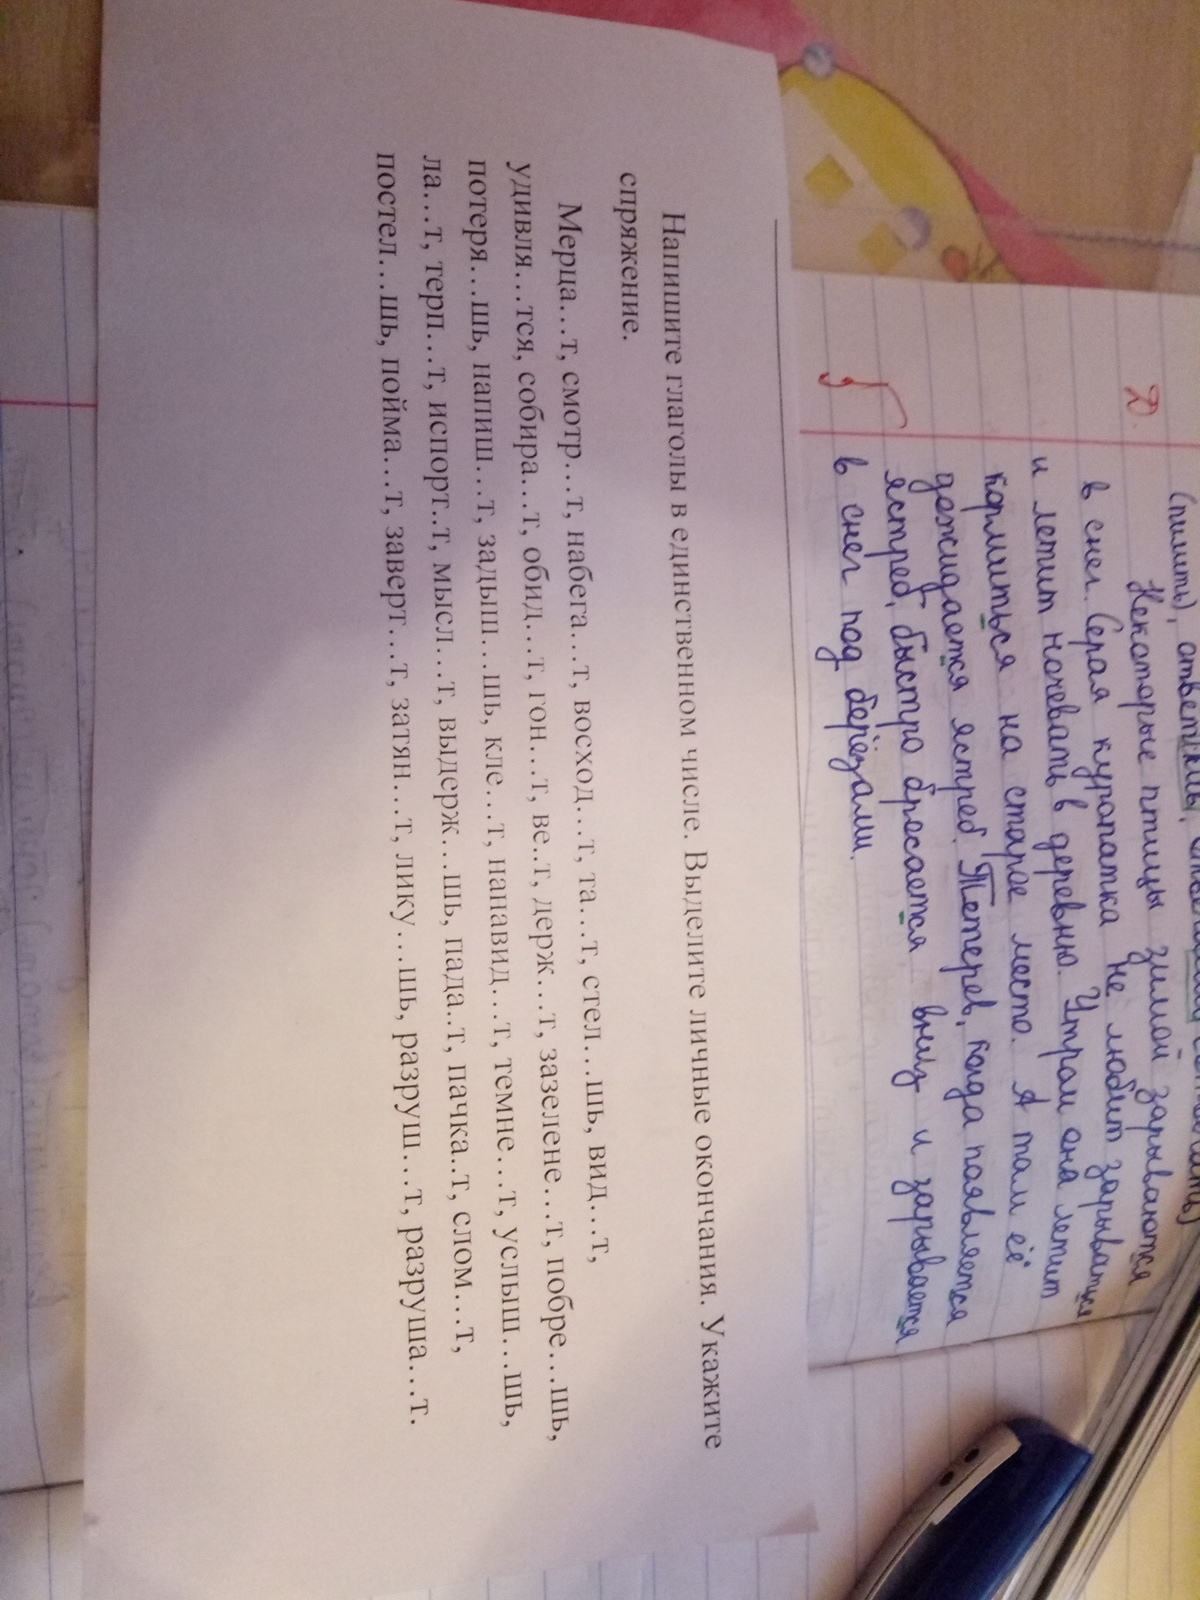 (пилить),
Некоторые птицы зимой зарываются
в снег. Серая куропатка не любит зарываться
и летит ночевать в деревню. Утром она летит
кормиться на старое место. А там её
дожидается ястреб. Тетерев, когда появляется
ястреб, быстро бросается вниз и зарывается
в снег под берёзами.
Напишите глаголы в единственном числе. Выделите личные окончания. Укажите
спряжение.
Мерца…т, смотр…т, набега…т, восход…т, та…т, стел…шь, вид…т,
удивля…тся, собира…т, обид…т, гон…т, ве..т, держ…т, зазелене…т, побре…шь,
потеря…шь, напиш…т, задыш…шь, кле…т, нанавид…т, темне…т, услыш…шь,
ла…т, терп…т, испорт..т, мысл…т, выдерж…шь, пада..т, пачка..т, слом…т,
постел…шь, пойма…т, заверт…т, затян…т, лику…шь, разруш…т, разруша…т.